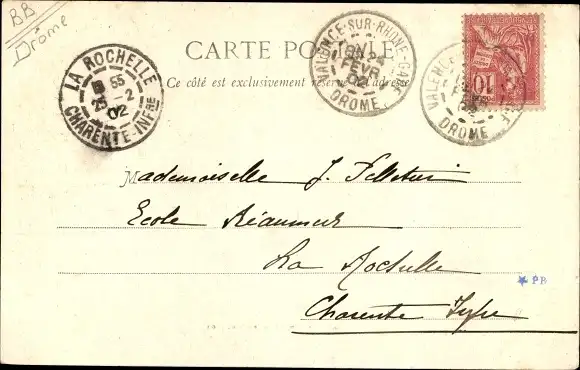 BB
Drôme
CARTE POSTALE
Ce côté est exclusivement réservé à l'adresse
LA ROCHELLE
55
25 -2
02
CHARENTE-INFRE
VALENCE-SUR-RHONE-GARE
FEVR
02
DROME
VALENCE
DROME
10
Mademoiselle J. Pelletier
Ecole Réaumur
La Rochelle
Charente Infre
PB